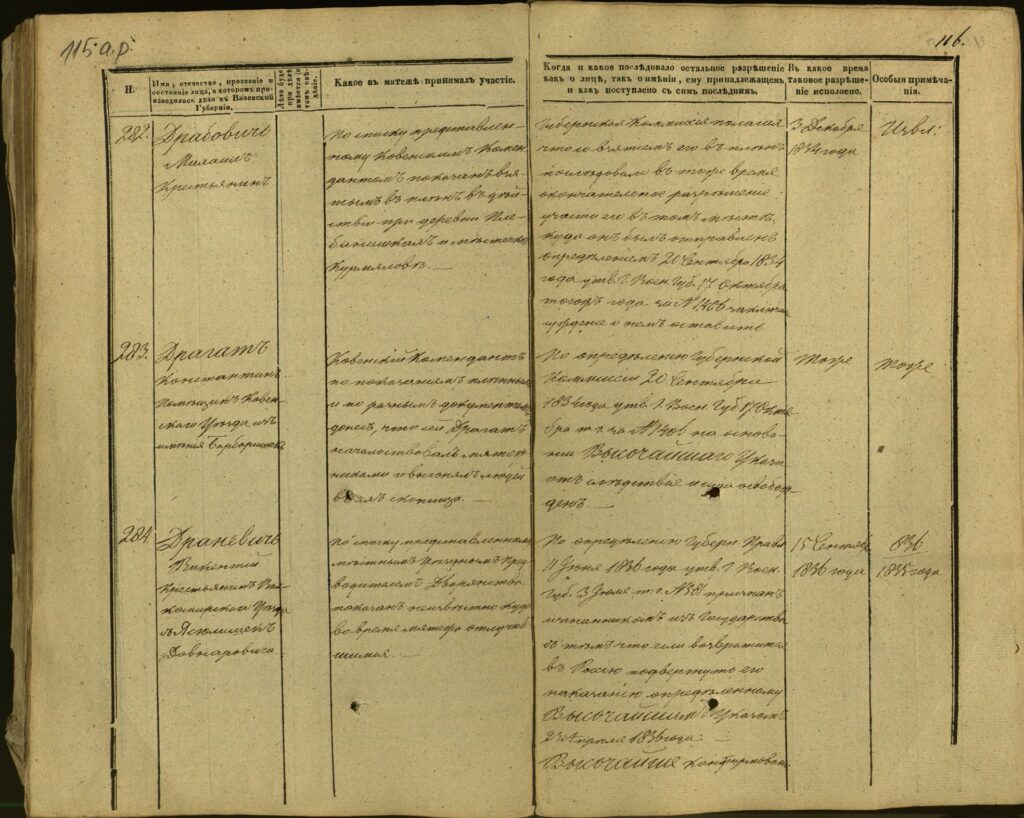 115 а.р.
116.
Н.
Имя, отчество, прозвание и
состояніе лица, о которомъ про-
изводилось дѣло въ Виленской
Губерніи.
Какое въ мятежѣ принималъ участіе.
Когда и какое послѣдовало остальное разрѣшеніе
какъ о лицѣ, такъ о имѣніи, ему принадлежащемъ
и какъ поступлено съ симъ послѣднимъ.
Въ какое время
таковое разрѣше-
ніе исполнено.
Особыя примѣча-
нія.
282.
Драбовичь
Михаилъ
Крестьянинъ
По списку представлен-
ному Ковенскимъ Комен-
дантомъ показанъ взя-
тымъ въ плѣнъ въ дѣй-
ствіи при деревни Пле-
банишкахъ и мѣстечка
Губернская Коммисія полагая
что по взятіемъ его въ плѣнъ
послѣдовало въ тоже время
окончательное разрѣшеніе
участи его въ томъ мѣстѣ,
куда онъ былъ отправленъ
опредѣленіемъ 20 Сентября 1834
года утв. Г. Воен. Губ. 17 Октября
тогожъ года за № 1406 заключи
о немъ оставить
3 Декабря
1834 года
283.
Драгатъ
Константинъ
Помѣщикъ Ковен-
скаго Уѣзда изъ
имѣнія
Ковенскій Комендантъ
по показаніямъ плѣнныхъ
и по разнымъ документамъ
донесъ, что сей Драгатъ
начальствовалъ мятеж-
никами и выгонялъ людей
скопища.
По опредѣленію Губернской
Коммисіи 20 Сентября
1834 года утв. Г. Воен. Губ. 17 Октя-
бря т. г. за № 1406 на основа-
ніи Высочайшаго Указа
отъ слѣдствія и суда освобож-
денъ.
тоже
тоже
284.
Драневичь
Викентій
Крестьянинъ Вил-
комирскаго Уѣзда
Довнаровича
По списку представленному
мѣстнымъ Уѣзднымъ Пред-
водителемъ Дворянства
показанъ неизвѣстно куда
во время мятежа отлучив-
шимся.
По опредѣленію Губерн. Правл.
11 Іюня 1836 года утв. Г. Воен.
Губ. 3 Іюля т. г. № 381 признанъ
изгнанникомъ изъ Государства
съ тѣмъ что если возвратится
въ Россію подвергнуть его
наказанію опредѣленному
Высочайшимъ Указомъ
года:
Высочайше
15 Сентяб.
1836 года
836
1835 года